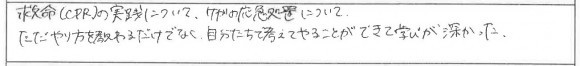 救命(CPR)の実践について、ケガの応急処置について。
ただやり方を教わるだけでなく、自分たちで考えてやることができて学びが深かった。